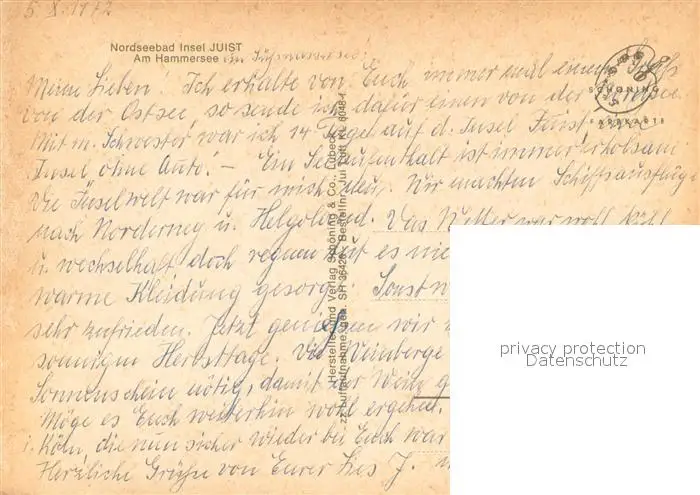 5.X.1972
Nordseebad Insel JUIST
Am Hammersee ein Süßwassersee!
SCHÖNING
FARBKARTE
Meine Lieben. Ich erhalte von Euch immer mal einen Gruß
von der Ostsee, so sende ich dafür einen von der Nordsee.
Mit m. Schwester war ich 14 Tage auf d. Insel Juist, eine
Insel ohne Auto! – Ein Seeaufenthalt ist immer erholsam
Die Inselwelt war für mich neu. Wir machten Schiffsausflüge
nach Norderney u. Helgoland. Das Wetter war wohl kühl
u. wechselhaft, doch regnen tat es
warme Kleidung gesorgt. Sonst
sehr zufrieden. Jetzt genießen wir
sonnigen Herbsttage. Die Weinberge
Sonnenschein nötig, damit der Wein
Möge es Euch weiterhin wohl ergehen.
i. Köln, die nun sicher wieder bei Euch war
Herzliche Grüße von Eurer Lies J.
Herstellung und Verlag Schöning & Co., Lübeck
Luftaufnahme, gen. SH 36426 Bestellnr. Jui Luft KL 6048
privacy protection
Datenschutz